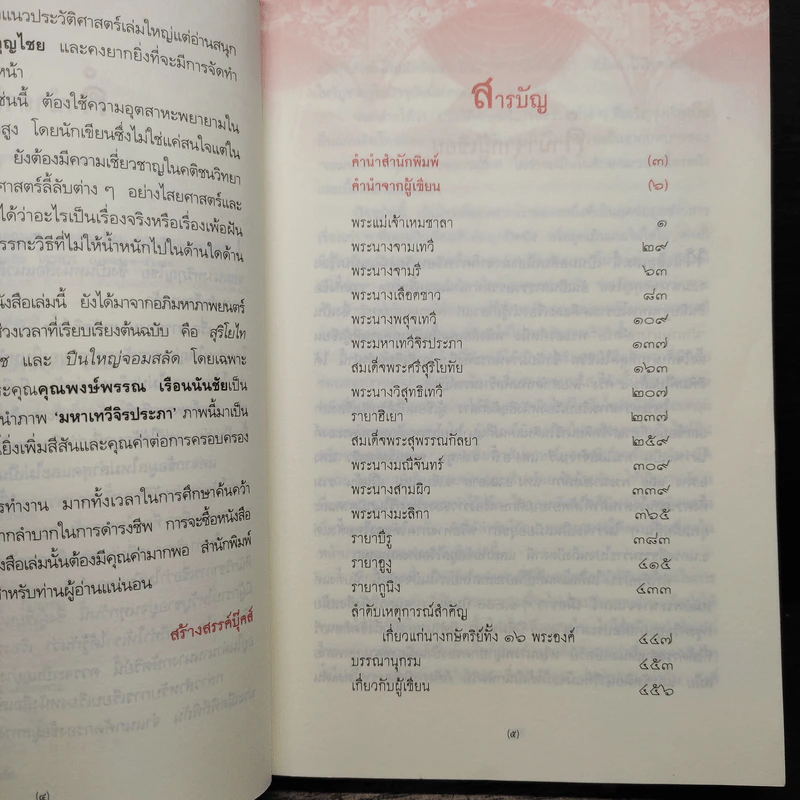 แนวประวัติศาสตร์เล่มใหญ่แต่อ่านสนุก
ญไชย และคงยากยิ่งที่จะมีการจัดทำ
หน้า
ช่นนี้ ต้องใช้ความอุตสาหะพยายามใน
สูง โดยนักเขียนซึ่งไม่ใช่แค่สนใจแต่ใน
ยังต้องมีความเชี่ยวชาญในคติชนวิทยา
ศาสตร์ลี้ลับต่าง ๆ อย่างไสยศาสตร์และ
ได้ว่าอะไรเป็นเรื่องจริงหรือเรื่องเพ้อฝัน
รรกะวิธีที่ไม่ให้น้ำหนักไปในด้านใดด้าน
นังสือเล่มนี้ ยังได้มาจากอภิมหาภาพยนตร์
ช่วงเวลาที่เรียบเรียงต้นฉบับ คือ สุริโยไท
ช และ ปืนใหญ่จอมสลัด โดยเฉพาะ
ระคุณคุณพงษ์พรรณ เรือนนันชัยเป็น
นำภาพ 'มหาเทวีจิรประภา' ภาพนี้มาเป็น
ยิ่งเพิ่มสีสันและคุณค่าต่อการครอบครอง
รทำงาน มากทั้งเวลาในการศึกษาค้นคว้า
ากลำบากในการดำรงชีพ การจะซื้อหนังสือ
งสือเล่มนั้นต้องมีคุณค่ามากพอ สำนักพิมพ์
สำหรับท่านผู้อ่านแน่นอน
สร้างสรรค์บุ๊คส์
(๔)
สารบัญ
คำนำสำนักพิมพ์ (๓)
คำนำจากผู้เขียน (๖)
พระแม่เจ้าเหมชาลา ๑
พระนางจามเทวี ๒๙
พระนางจามรี ๖๓
พระนางเลือดขาว ๘๓
พระนางพสุจเทวี ๑๐๙
พระมหาเทวีจิรประภา ๑๓๗
สมเด็จพระศรีสุริโยทัย ๑๖๓
พระนางวิสุทธิเทวี ๒๐๗
รายาฮิเยา ๒๓๗
สมเด็จพระสุพรรณกัลยา ๒๕๙
พระนางมณีจันทร์ ๓๐๙
พระนางสามผิว ๓๓๙
พระนางมะลิกา ๓๖๕
รายาบีรู ๓๘๓
รายาอูงู ๔๑๕
รายากูนิง ๔๓๓
ลำดับเหตุการณ์สำคัญ
เกี่ยวแก่นางกษัตริย์ทั้ง ๑๖ พระองค์ ๔๔๗
บรรณานุกรม ๔๕๓
เกี่ยวกับผู้เขียน ๔๕๖
(๕)